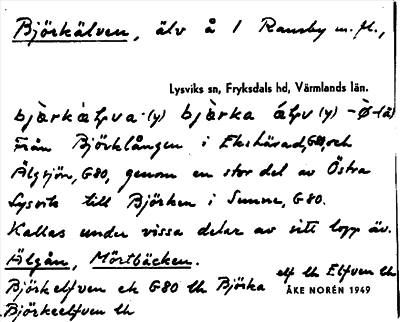 Björkälven, älv å 1 Ransby m.fl.,
Lysviks sn, Fryksdals hd, Värmlands län.
bjàrkàļva (y) bjàrka áļv (y) -Ø- (ä)
Från Björklången i Ekshärad, G80, och
Älgsjön, G80, genom en stor del av Östra
Lysvik till Björken i Sunne, G80.
Kallas under vissa delar av sitt lopp äv.
Älgån, Mörtbäcken.
Björkelfven ek G80 lh Björka elf lh Elfven lh
ÅKE NORÉN 1949
Björkeelfven lh